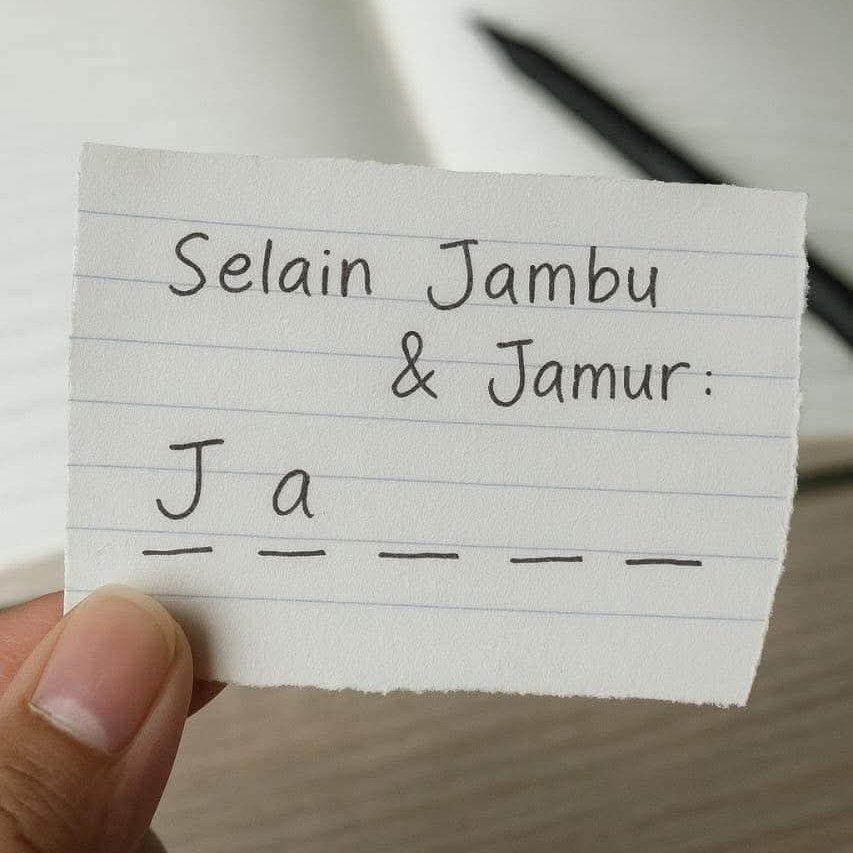 Selain Jambu
& Jamur:
J a _ _ _